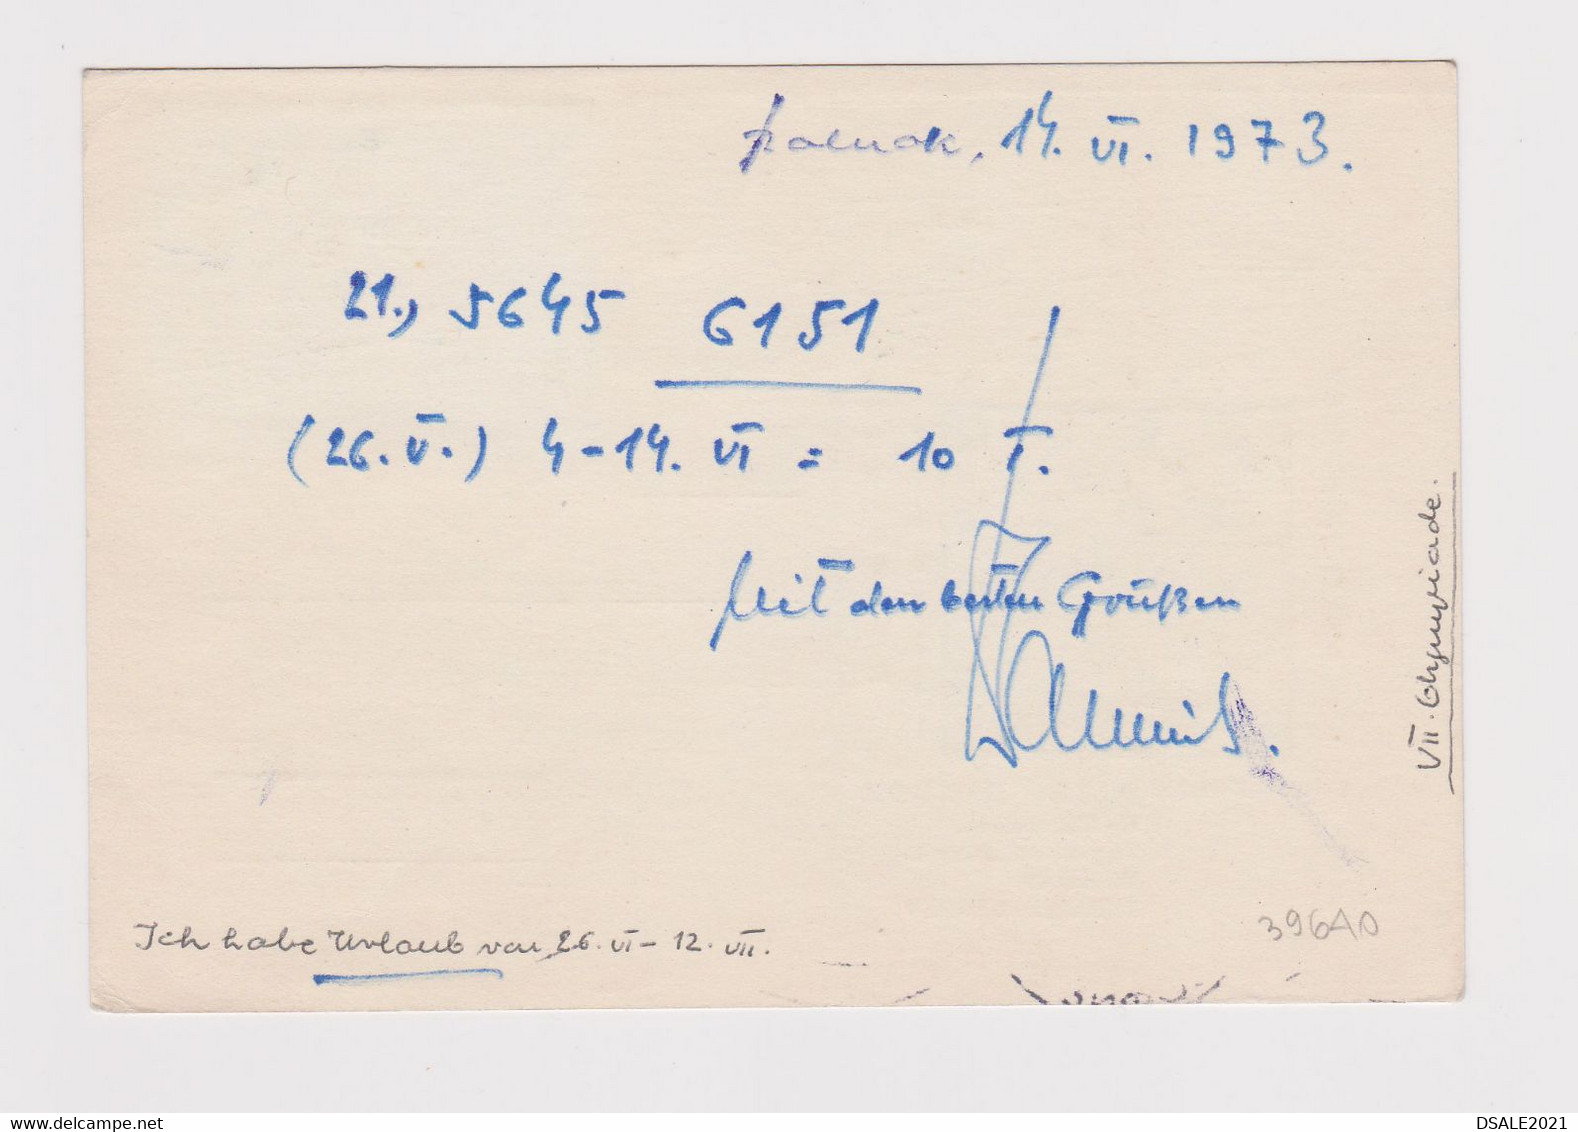 Szolnok, 14. VI. 1973.
21., 5645 6151
(26. V.) 4-14. VI = 10 T.
Mit den besten Grüßen
VII. Olympiade.
Ich habe Urlaub von 26. VI - 12. VII.
396A0
DSALE2021